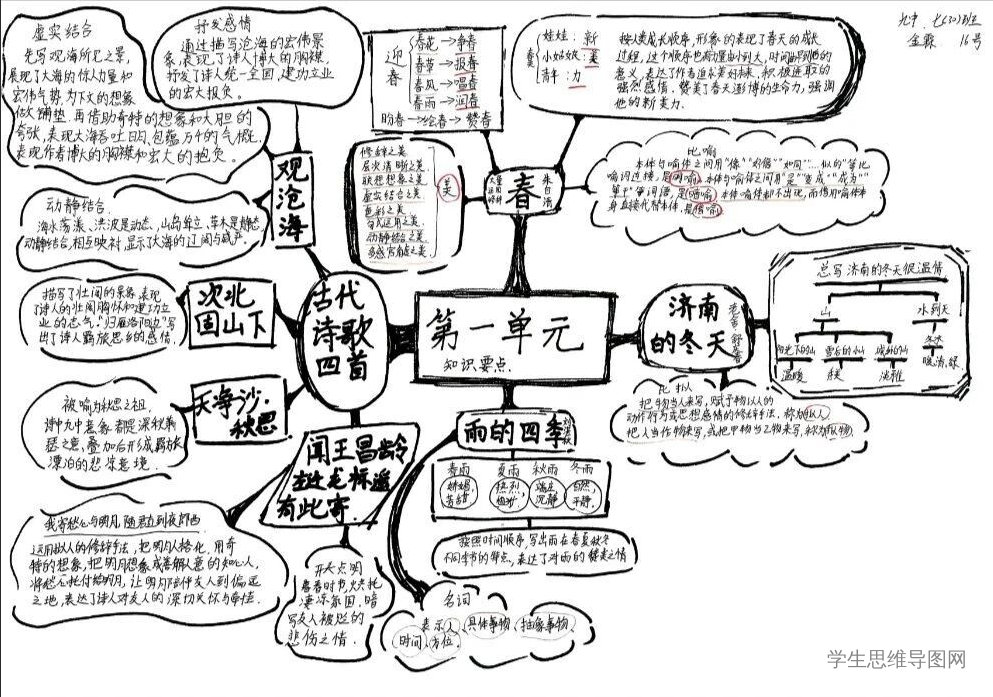 虚实结合
先写观海所见之景,
展现了大海的惊人力量和
宏伟气势,为下文的想象
做好铺垫.再借助奇特的想象和大胆的
夸张,表现大海吞吐日月、包蕴万千的气概.
表现作者博大的胸襟和宏大的抱负。
抒发感情
通过描写沧海的宏伟景
象,表现了诗人博大的胸襟,
抒发了诗人统一全国,建功立业
的宏大抱负。
观沧海
动静结合.
海水荡漾、洪波是动态、山岛耸立、草木是静态
动静结合,相互映衬,显示了大海的辽阔与威严。
迎春
春花→争春
春草→报春
春风→温春
春雨→润春
盼春→绘春→赞春
娃娃:新
小姑娘:美
青年:力
按人类成长顺序,形象的表现了春天的成长
过程,这个顺序也有力量由小到大,时间
意义,表达了作者追求美好未来,积极进取的
强烈感情,赞美了春天
他的新美力.
九中 七(30)班
金霖 16号
修辞之美
层次清晰之美
联想想象之美
虚实结合之美
色彩之美
句式运用之美
动静结合之美
多感官角度之美
美
大量运用修辞
春
朱自清
比喻
本体与喻体之间用“像”“好像”“如同”“…似的”等比
喻词连接,是明喻.本体与喻体之间用“是”“变成”“成为”
单”等词语,是暗喻.本体喻体都不出现,而借用喻体本
身直接代替本体,是借喻.
次北
固山下
描写了壮阔的景象.表现
了诗人的壮阔胸怀和建功立
业的志气.“归雁洛阳边”写
出了诗人羁旅思乡的感情.
古代
诗歌
四首
第一单元
知识要点.
济南
的冬天
老舍 舒庆春
总写济南的冬天很温情
山
水到天
阳光下的山
雪后的小山
城外的山
冬天
温暖
秀美
淡雅
暖,清,绿
比拟
把事物当人来写,赋予物以人的
动作行为或思想感情的修辞手法,称为拟人
把人当作物来写,或把甲物当乙物来写,称为拟物.
天净沙·
秋思
被喻为秋思之祖.
诗中九中意象都是深秋萧
瑟之意,叠加后形成羁旅
漂泊的悲凉意境.
闻王昌龄
左迁龙标遥
有此寄
我寄愁心与明月,随君直到夜郎西
运用拟人的修辞手法,把明月人格化,用奇
特的想象,把明月想象成善解人意的知心人,
将愁心托付给明月,让明月陪伴友人到偏远
之地,表达了诗人对友人的深切关怀与牵挂.
开头点明
暮春时节,烘托
凄凉氛围,暗
写友人被贬的
悲伤之情.
雨的四季
刘湛秋
春雨 夏雨 秋雨 冬雨
热烈,
端庄
沉静
自然,
平静.
按照时间顺序,写出雨在春夏秋冬
不同季节的特点,表达了对雨的赞美之情
名词
表示人、具体事物、抽象事物、
时间、方位.
学生思维导图网